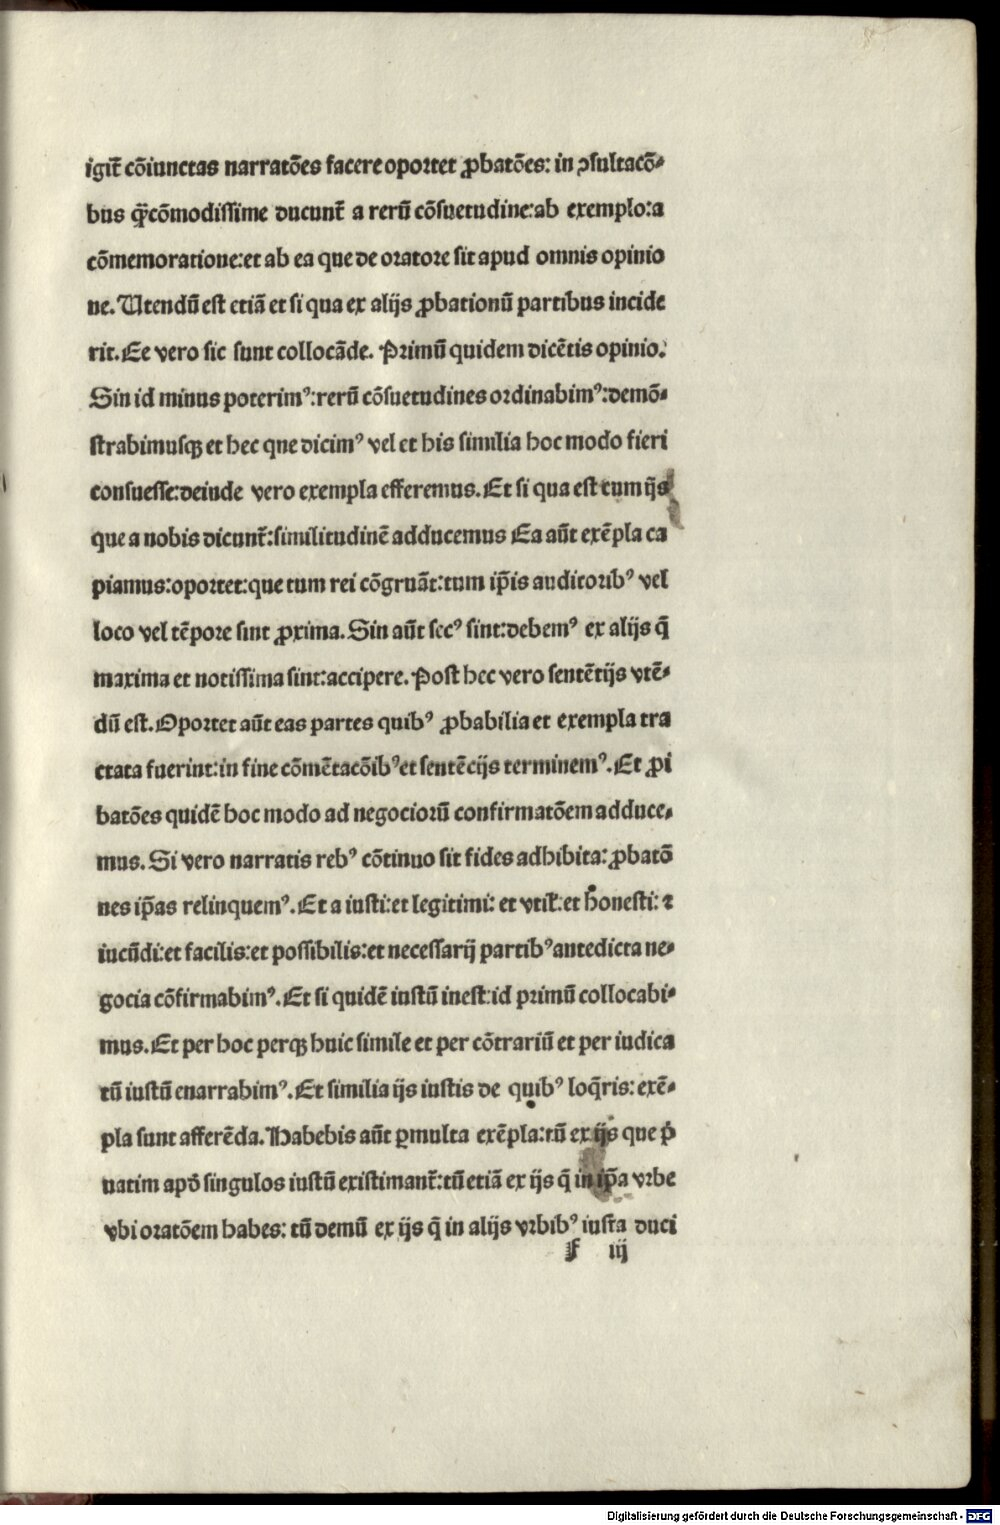 igit̃ cõiunctas narratões facere oportet ꝓbatões: in ↄsultacõ⸗
bus q̃ cõmodissime ducunt̃ a rerũ cõsuetudine:ab exemplo:a
cõmemoratione:et ab ea que de oratore sit apud omnis opinio
ne. Utendũ est etiã et si qua ex alijs ꝓbationũ partibus incide
rit. Ee vero sic sunt collocãde. Primũ quidem dicẽtis opinio.
Sin id minus poterimꝰ:rerũ cõsuetudines ordinabimꝰ:demõ⸗
strabimusqꝫ et hec que dicimꝰ vel et his similia hoc modo fieri
consuesse:deinde vero exempla efferemus. Et si qua est tum ijs
que a nobis dicunt̃:similitudinẽ adducemus Ea aũt exẽpla ca
piamus:oportet:que tum rei cõgruãt:tum ip̃is auditoribꝰ vel
loco vel tẽpore sint ꝓxima. Sin aũt secꝰ sint:debemꝰ ex alijs q̃
maxima et notissima sint:accipere. Post hec vero sentẽtijs vtẽ⸗
dũ est. Oportet aũt eas partes quibꝰ ꝓbabilia et exempla tra
ctata fuerint:in fine cõmẽtacõibꝰ et sentẽcijs terminemꝰ. Et ꝓi
batões quidẽ hoc modo ad negociorũ confirmatõem adduce⸗
mus. Si vero narratis rebꝰ cõtinuo sit fides adhibita: ꝓbatõ
nes ip̃as relinquemꝰ. Et a iusti:et legitimi: et vtil̃:et honesti: ꝛ
iucũdi:et facilis:et possibilis:et necessarij partibꝰ antedicta ne⸗
gocia cõfirmabimꝰ. Et si quidẽ iustũ inest:id primũ collocabi⸗
mus. Et per hoc perqꝫ huic simile et per cõtrariũ et per iudica
tũ iustũ enarrabimꝰ. Et similia ijs iustis de quibꝰ loq̃ris: exẽ⸗
pla sunt afferẽda. Habebis aũt ꝑmulta exẽpla:tũ ex ijs que p̃
uatim apd̃ singulos iustũ existimant̃:tũ etiã ex ijs q̃ in ip̃a vrbe
vbi oratõem habes: tũ demũ ex ijs q̃ in alijs vrbibꝰ iusta duci
F iij
Digitalisierung gefördert durch die Deutsche Forschungsgemeinschaft - DFG